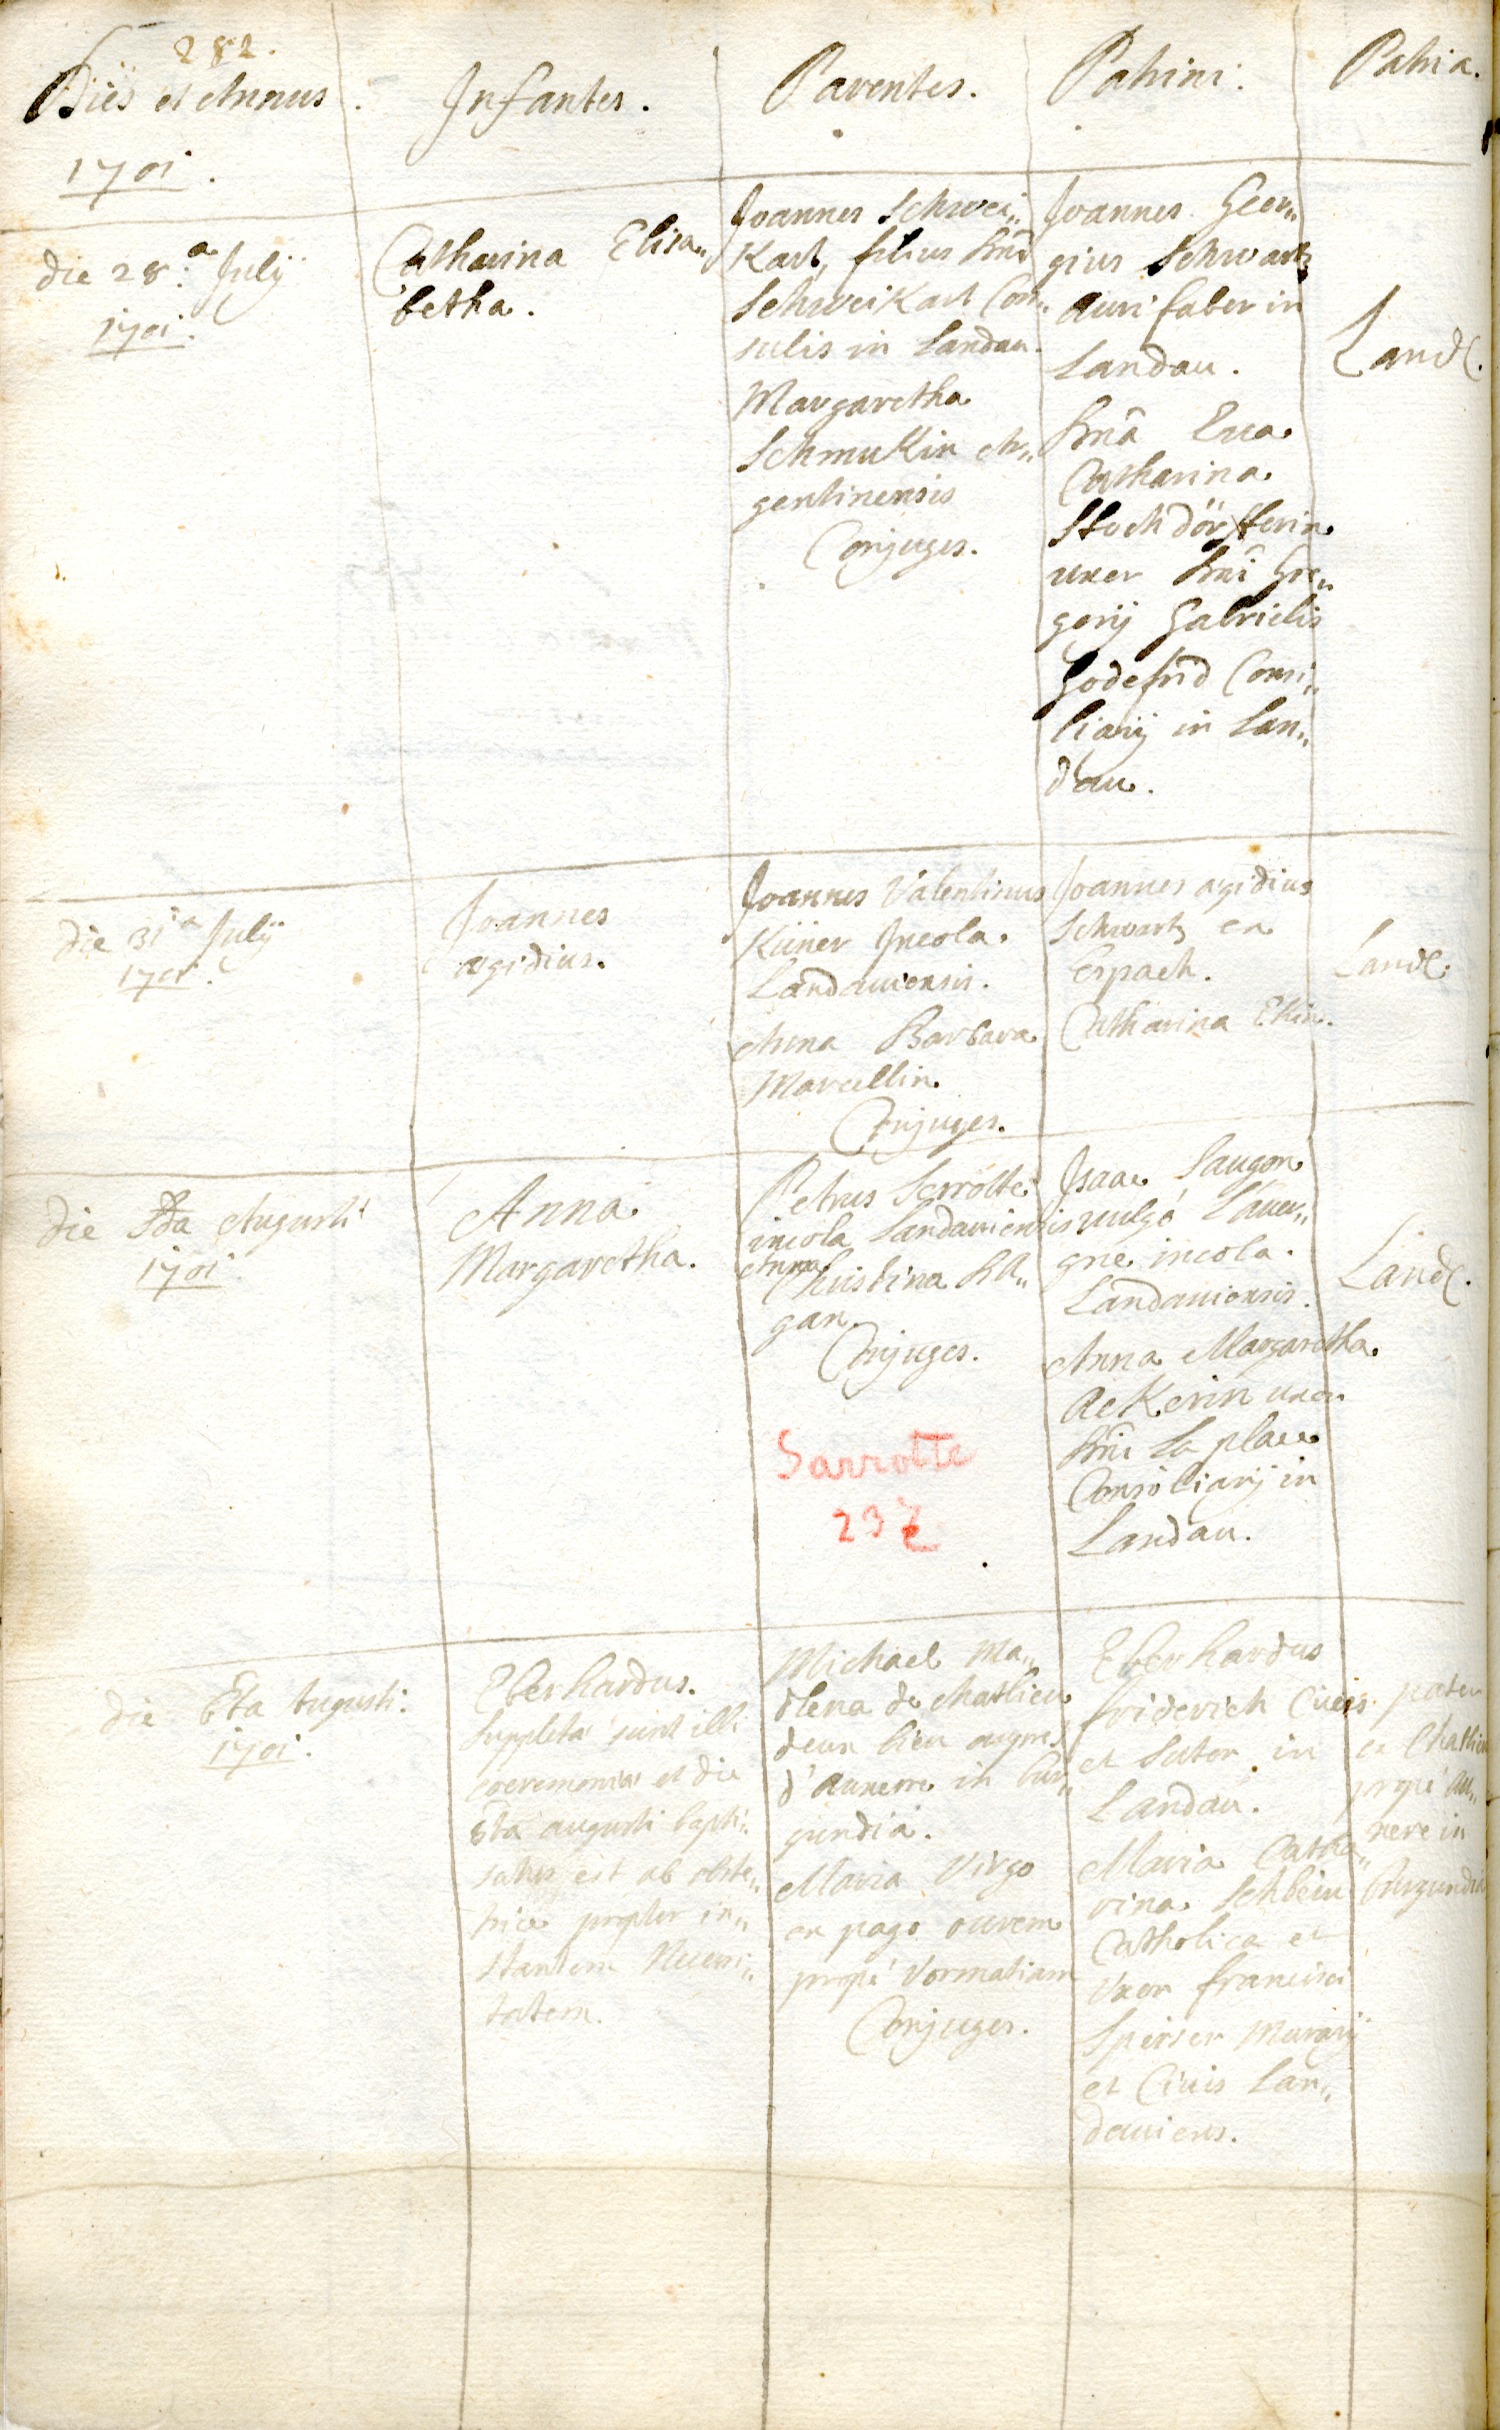 282.
Dies et Annus.
Infantes.
Parentes.
Patrini.
Patria.
1701.
die 28.a Julij
1701.
Catharina Elisa„
betha.
Joannes Schwei„
Kart, filius Dni
SchweiKart Con„
sulis in Landau.
Margaretha
SchmuKin Ar„
gentinensis
Conjuges.
Joannes Geor„
gius Schwartz
Aurifaber in
Landau.
Dnã Eua
Catharina
Stochdörfferin
uxer Dni Gre„
gorij Gabrielis
Godefrid Consi„
liarij in Lan„
dau.
Landã.
die 31a Julij
1701.
Joannes
ægidius.
Joannes Valentinus
Küner Incola
Landauiensis.
Anna Barbara
Marcellin
Conjuges.
Joannes ægidius
Schwartz ex
Erspach.
Catharina EKin.
Landã.
die 3ta Augusti
1701.
Anna
Margaretha.
Petrus Serrotte
incola Landauiensis
Anna
Christina Ra„
gan
Conjuges.
Sarrotte
237
Isaac Saugon
uulgò Lauer„
gne incola
Landauiensis.
Anna Margaretha
AcKerin uxor
Dni La place
Consiliarij in
Landau.
Landã.
die 6ta Augusti
1701.
Eberhardus.
suppleta sunt illi
coeremoniæ et die
5ta augusti bapti„
satus est ab obste„
trice propter in„
stantem Necessi„
tatem.
Michael Ma„
dlena de chatlieu
deux lieu
d'auxerre in bur„
gundiâ.
Maria Virgo
ex pago
propè Vormatiam
Conjuges.
Eberhardus
friderich Ciuis
et Sutor in
Landau.
Maria Catha„
rina Schbein
Catholica et
Vxor francisci
Speiser Murarij
et Ciuis Lan„
dauiens.
pater
ex Chatlieu
propè au„
xere in
Burgundia